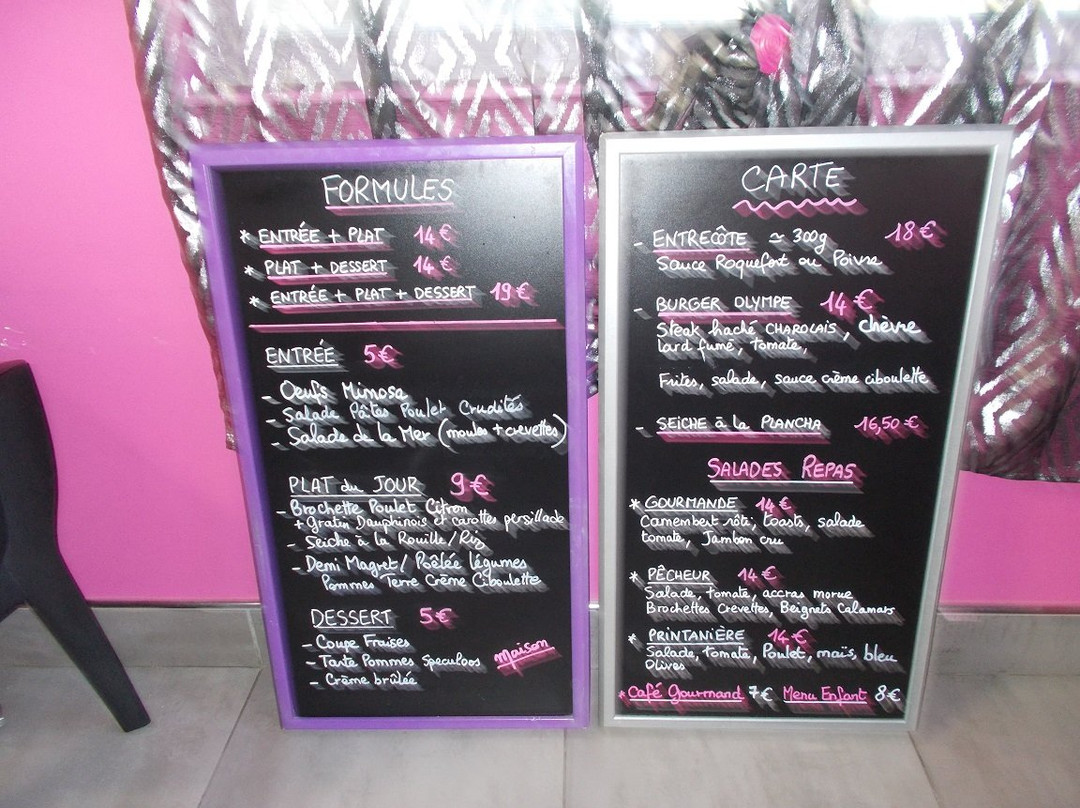 FORMULES
* ENTRÉE + PLAT 14€
* PLAT + DESSERT 14€
* ENTRÉE + PLAT + DESSERT 19€
ENTRÉE 5€
- Oeufs Mimosa
- Salade Pâtes Poulet Crudités
- Salade de la Mer (moules + crevettes)
PLAT du JOUR 9€
- Brochette Poulet Citron
+ gratin Dauphinois et carottes persillade
- Seiche à la Rouille / Riz
- Demi Magret / Poêlée légumes
Pommes Terre Crème Ciboulette
DESSERT 5€
- Coupe Fraises
- Tarte Pommes Speculoos Maison
- Crème brûlée
CARTE
- ENTRECÔTE ≃ 300g 18€
Sauce Roquefort ou Poivre
- BURGER OLYMPE 14€
Steak haché CHAROLAIS, chèvre
lard fumé, tomate,
Frites, salade, sauce crème ciboulette
- SEICHE à la PLANCHA 16,50€
SALADES REPAS
* GOURMANDE 14€
Camembert rôti, toasts, salade
tomate, Jambon cru
* PÊCHEUR 14€
Salade, tomate, accras morue
Brochettes Crevettes, Beignets Calamars
* PRINTANIÈRE 14€
Salade, tomate, Poulet, maïs, bleu
Olives
* Café Gourmand 7€ Menu Enfant 8€